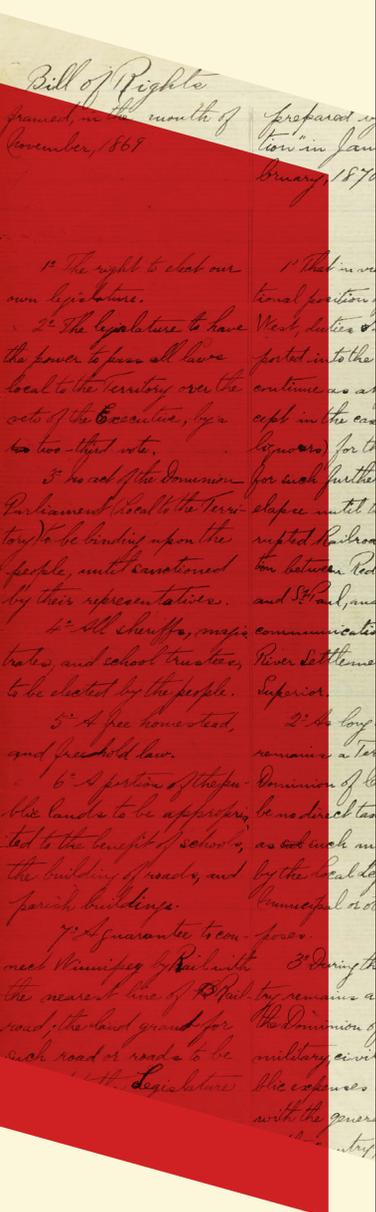 Bill of Rights
framed, in the month of
November, 1869
1º The right to elect our
own legislature.
2º The legislature to have
the power to pass all laws
local to the Territory over the
veto of the Executive, by a
two-third vote.
3º no act of the Dominion
Parliament (local to the Terri-
tory) to be binding upon the
people, until sanctioned
by their representatives.
4º All sheriffs, magis
trates, and school trustees,
to be elected by the people.
5º A free homestead,
and freehold law.
6º A portion of the pu-
blic lands to be appropria
ted to the benefit of schools,
the building of roads, and
parish buildings.
7º A guarantee to con-
nect Winnipeg by Rail with
the nearest line of Rail-
road; the land grant for
such road or roads to be
Legislature
prepared
tion" in Jan
bruary, 1870
1º That in
tional position
West, duties
ported into the
continue as at
cept in the cas
liquors) for
for such furthe
elapse until
rupted Railroa
tion between Red
and St Paul, and
communicatio
River Settleme
Superior.
2º As long
remains a Ter
Dominion of C
be no direct tax
as such
by the local Le
municipal or
poses.
3º During th
try remains a
the Dominion of
military, civi
blic expenses
with the gener